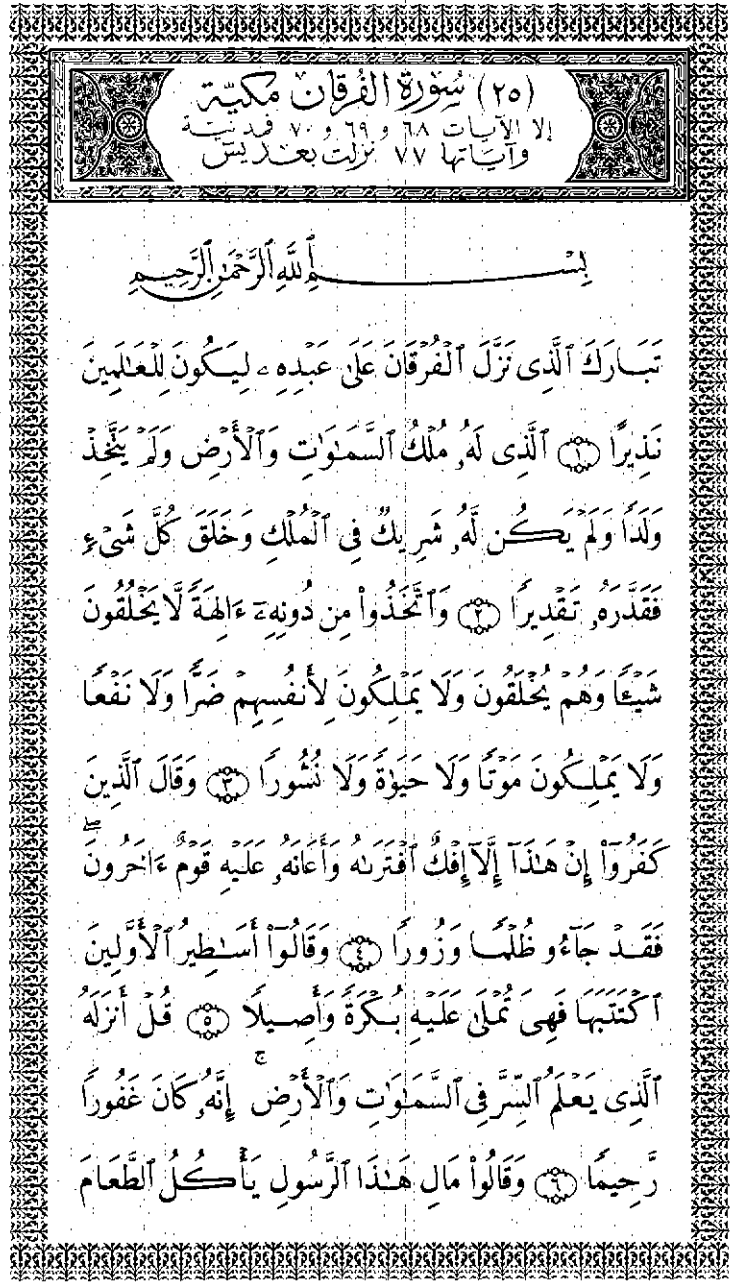 (٢٥) سُورَةُ الفُرْقَان مَكِيَّة
إلا الآيات ٦٨ و ٦٩ و ٧٠ فمدنية
وآياتها ٧٧ نزلت بعد يس
بِسْمِ ٱللَّهِ ٱلرَّحْمَٰنِ ٱلرَّحِيمِ
تَبَارَكَ ٱلَّذِى نَزَّلَ ٱلْفُرْقَانَ عَلَىٰ عَبْدِهِۦ لِيَكُونَ لِلْعَـٰلَمِينَ
نَذِيرًا ١ ٱلَّذِى لَهُۥ مُلْكُ ٱلسَّمَـٰوَٰتِ وَٱلْأَرْضِ وَلَمْ يَتَّخِذْ
وَلَدًا وَلَمْ يَكُن لَّهُۥ شَرِيكٌ فِى ٱلْمُلْكِ وَخَلَقَ كُلَّ شَىْءٍ
فَقَدَّرَهُۥ تَقْدِيرًا ٢ وَٱتَّخَذُوا۟ مِن دُونِهِۦٓ ءَالِهَةً لَّا يَخْلُقُونَ
شَيْـًٔا وَهُمْ يُخْلَقُونَ وَلَا يَمْلِكُونَ لِأَنفُسِهِمْ ضَرًّا وَلَا نَفْعًا
وَلَا يَمْلِكُونَ مَوْتًا وَلَا حَيَوٰةً وَلَا نُشُورًا ٣ وَقَالَ ٱلَّذِينَ
كَفَرُوٓا۟ إِنْ هَـٰذَآ إِلَّآ إِفْكٌ ٱفْتَرَىٰهُ وَأَعَانَهُۥ عَلَيْهِ قَوْمٌ ءَاخَرُونَ ۖ
فَقَدْ جَآءُو ظُلْمًا وَزُورًا ٤ وَقَالُوٓا۟ أَسَـٰطِيرُ ٱلْأَوَّلِينَ
ٱكْتَتَبَهَا فَهِىَ تُمْلَىٰ عَلَيْهِ بُكْرَةً وَأَصِيلًا ٥ قُلْ أَنزَلَهُ
ٱلَّذِى يَعْلَمُ ٱلسِّرَّ فِى ٱلسَّمَـٰوَٰتِ وَٱلْأَرْضِ ۚ إِنَّهُۥ كَانَ غَفُورًا
رَّحِيمًا ٦ وَقَالُوا۟ مَالِ هَـٰذَا ٱلرَّسُولِ يَأْكُلُ ٱلطَّعَامَ